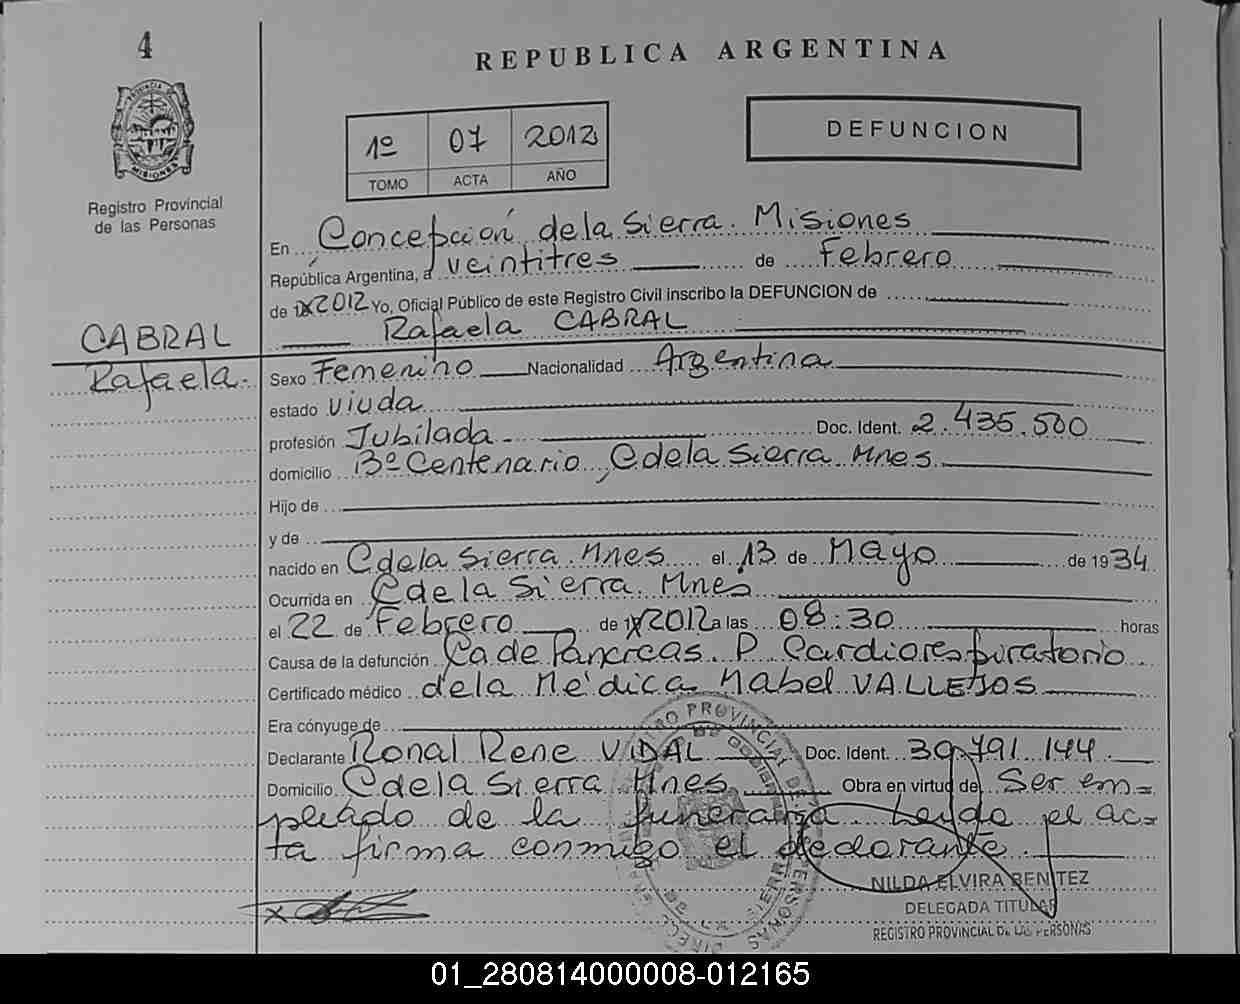 4
REPUBLICA ARGENTINA
PROVINCIA DE
MISIONES
Registro Provincial
de las Personas
1º 07 2012
TOMO ACTA AÑO
DEFUNCION
En Concepción de la Sierra. Misiones
República Argentina, a veintitres de Febrero
de 2012 Yo, Oficial Público de este Registro Civil inscribo la DEFUNCION de
CABRAL
Rafaela.
Rafaela CABRAL
Sexo Femenino Nacionalidad Argentina
estado Viuda
profesión Jubilada - Doc. Ident. 2.435.500
domicilio Bº Centenario, C de la Sierra. Mnes
Hijo de
y de
nacido en C de la Sierra. Mnes el 13 de Mayo de 1934
Ocurrida en C de la Sierra. Mnes
el 22 de Febrero de 2012 a las 08:30 horas
Causa de la defunción Ca de Pancreas. P Cardiorespiratorio
Certificado médico de la Médica Mabel VALLEJOS
Era cónyuge de
Declarante Ronal Rene VIDAL Doc. Ident. 39.791.144
Domicilio C de la Sierra Mnes Obra en virtud de Ser em=
pleado de la funeraria. Leída el ac=
ta firma conmigo el declarante.
NILDA ELVIRA BENITEZ
DELEGADA TITULAR
REGISTRO PROVINCIAL DE LAS PERSONAS
01_280814000008-012165